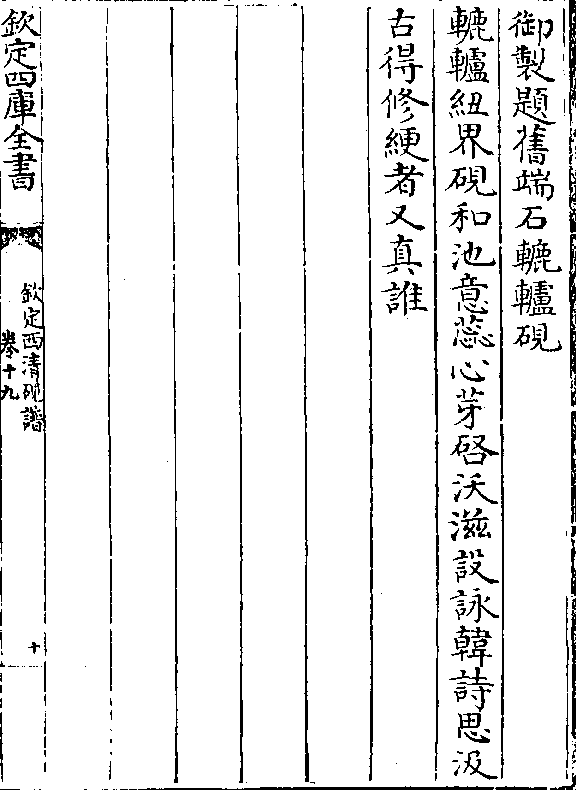 御製題舊端石轆轤硯
轆轤紐界硯和池意蕊心芽啓沃滋設詠韓詩思汲
古得修綆者又真誰
欽定四庫全書
欽定西清硯譜
卷十九
十